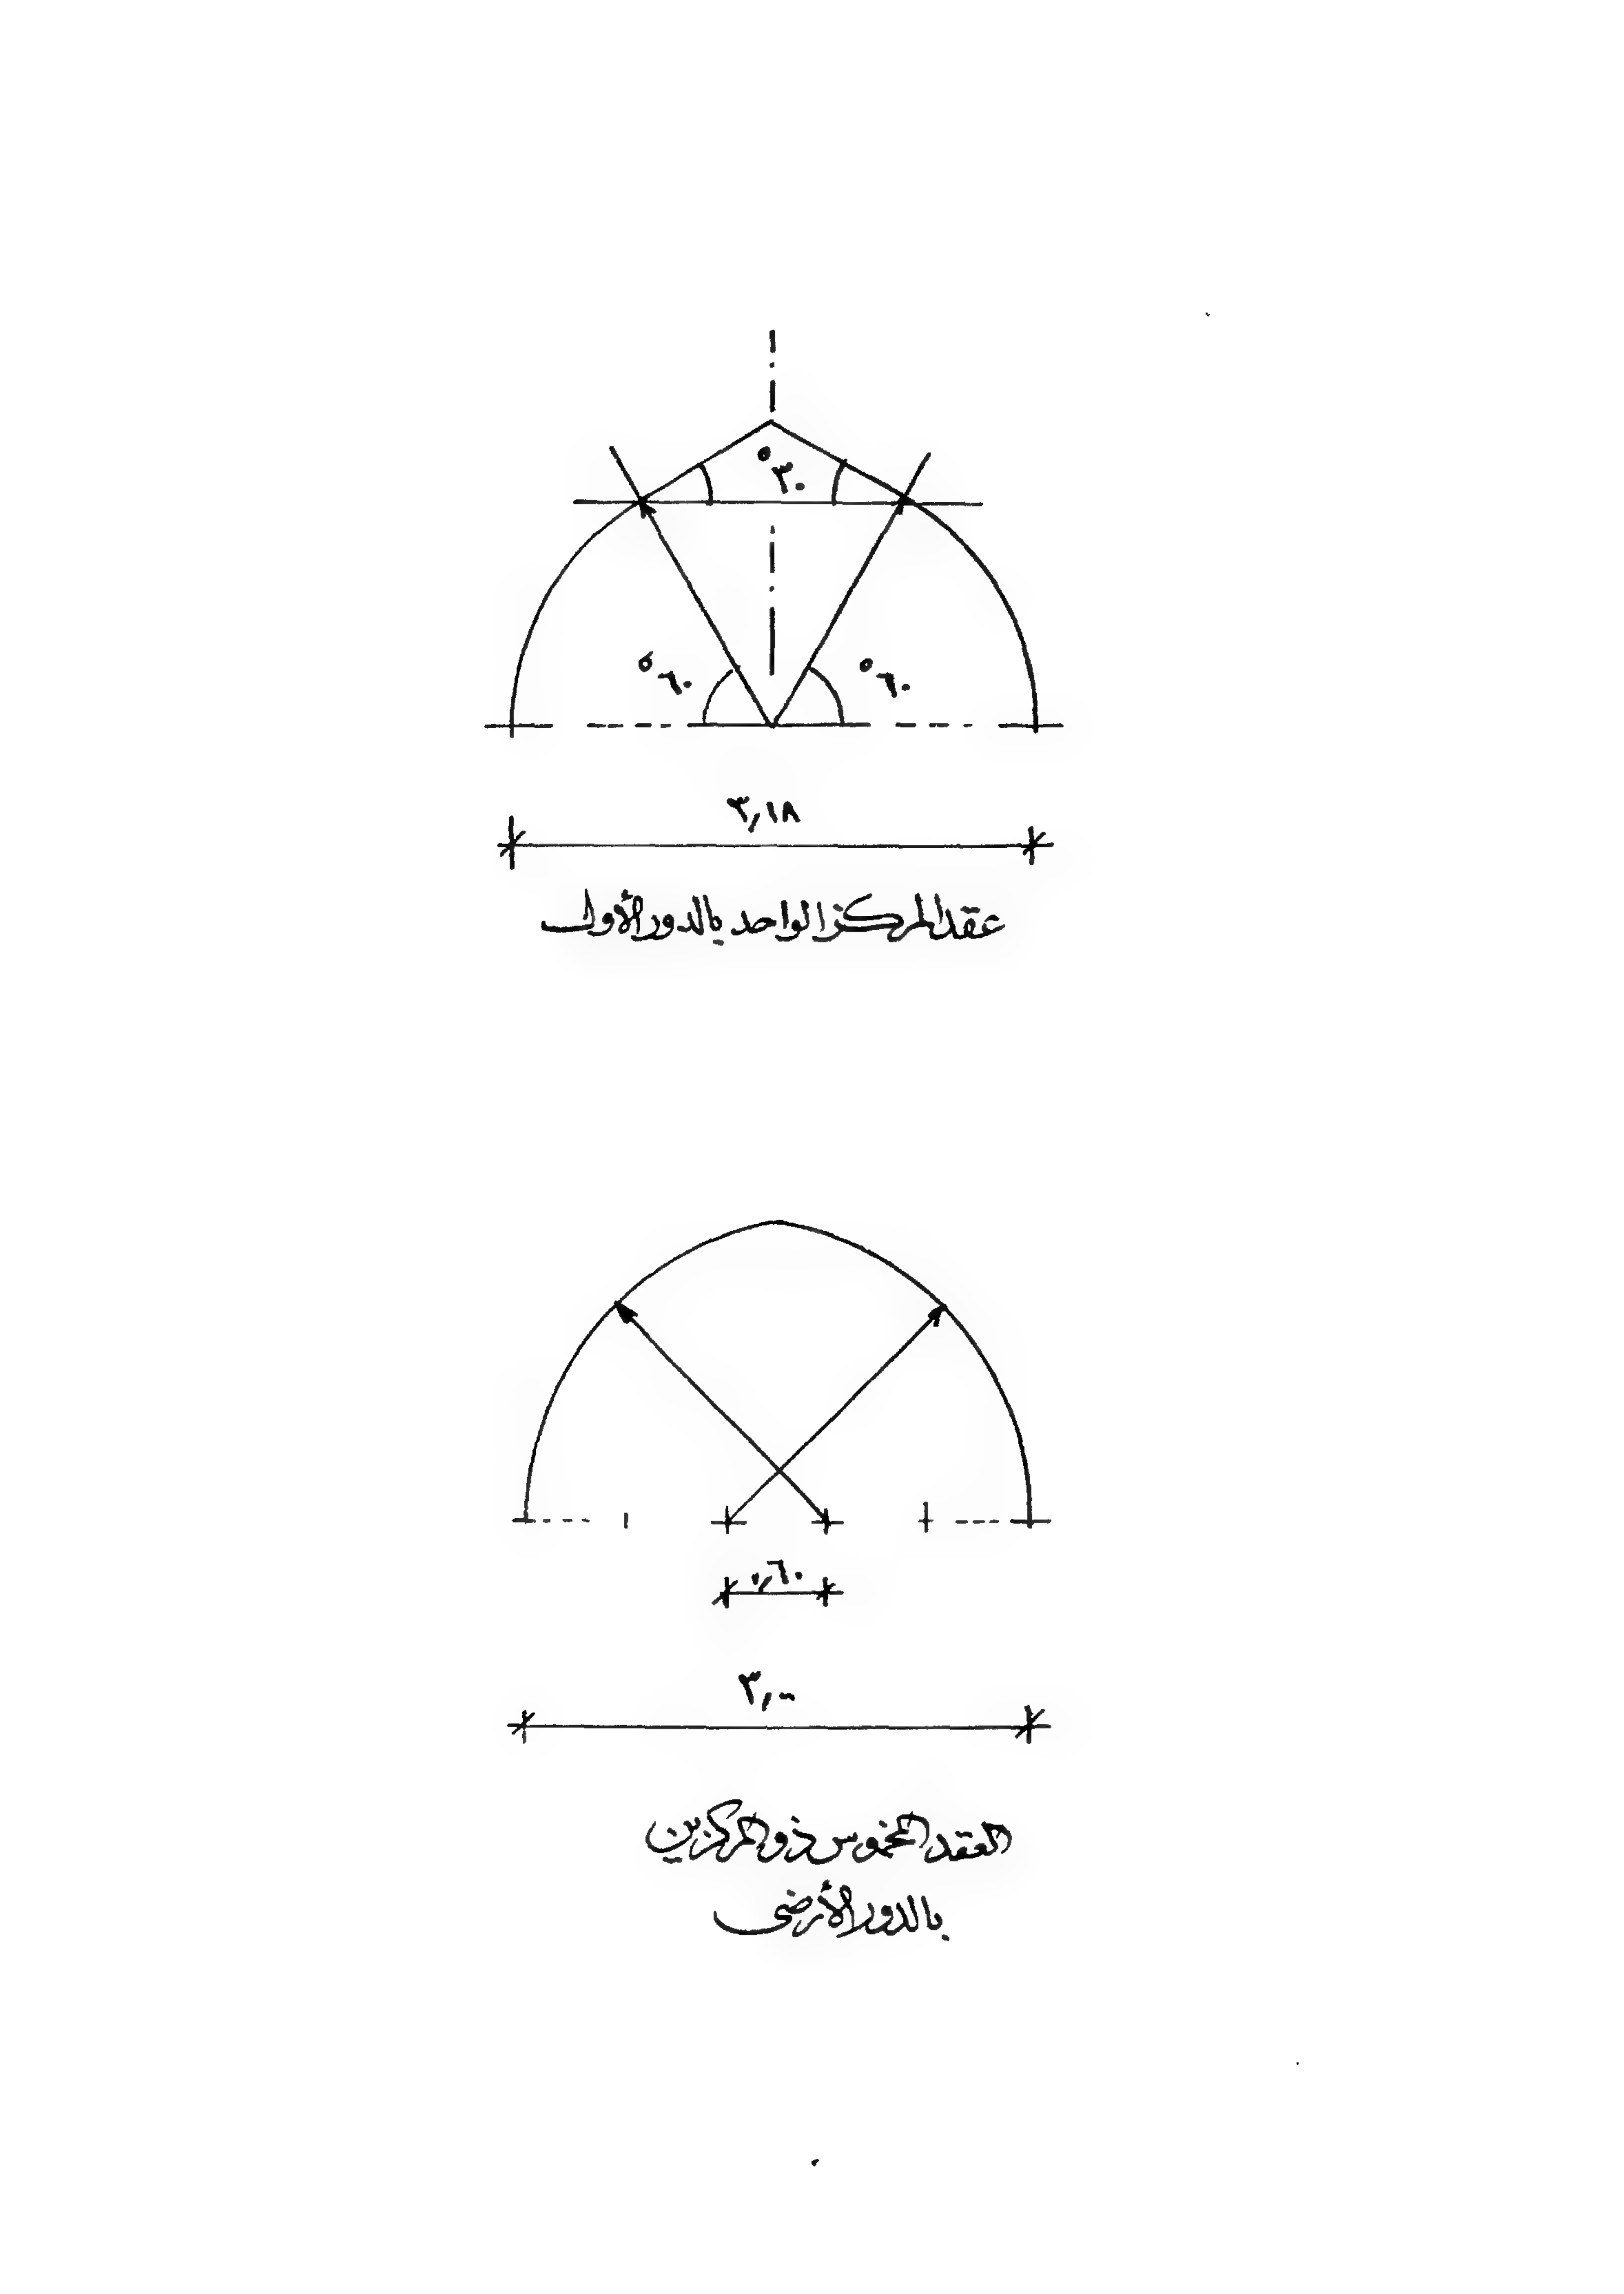 °٣٠
°٦٠ °٦٠
٣,١٨
عقد المركز الواحد بالدور الأول
٠,٦٠
٣,٠٠
العقد المخموس ذو المركزين
بالدور الأرضى